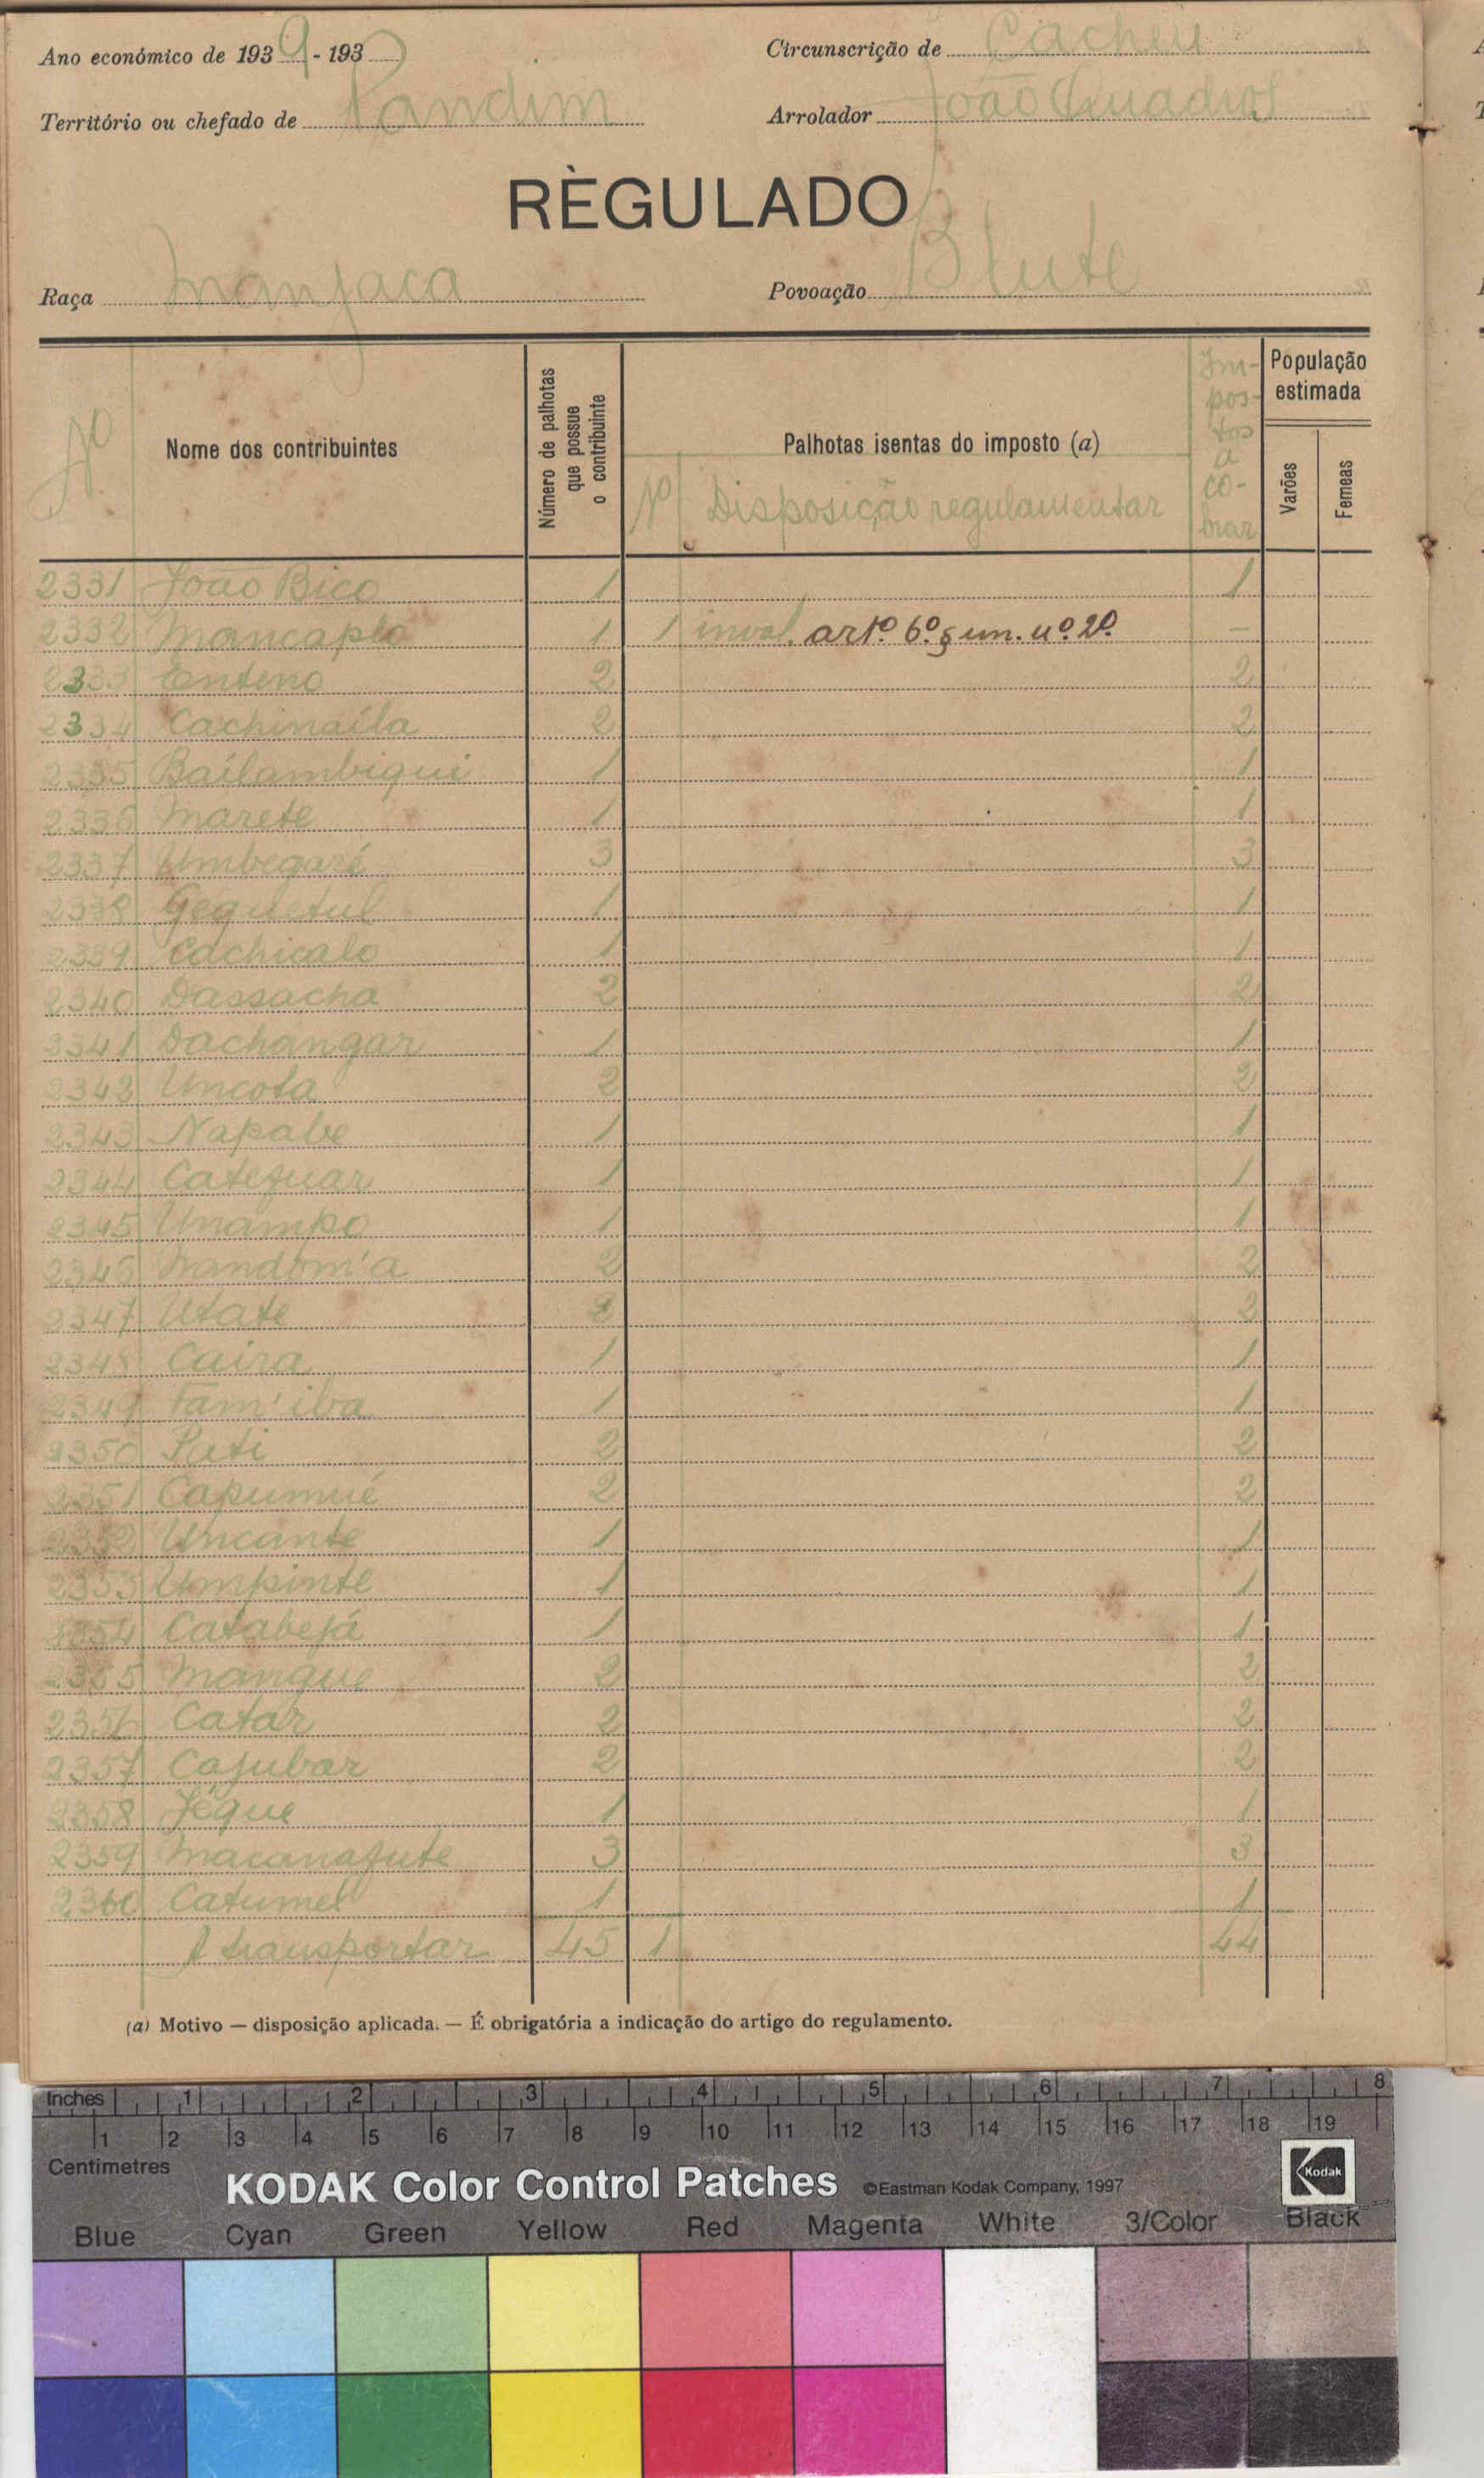 Ano económico de 1939-193
Circunscrição de Cacheu
Território ou chefado de Pandim
Arrolador João Quadros
RÈGULADO
Raça Manjaca
Povoação Blute
Nº
Nome dos contribuintes
Número de palhotas que possue o contribuinte
Palhotas isentas do imposto (a)
Nº Disposição regulamentar
Im-pos-tos a co-brar
População estimada
Varões
Femeas
2331 João Bico 1 1
2332 Mancaplo 1 1 inval. artº. 6º. § un. nº 2º. -
2333 Enteno 2 2
2334 Cachinaíla 2 2
2335 Bailambiqui 1 1
2336 Marete 1 1
2337 Umbegaré 3 3
2338 Gequetul 1 1
2339 Cachicalo 1 1
2340 Dassacha 2 2
2341 Dachangar 1 1
2342 Uncota 2 2
2343 Napabe 1 1
2344 Catequar 1 1
2345 Unampo 1 1
2346 Nandom'a 2 2
2347 Utate 2 2
2348 Caira 1 1
2349 Fam'iba 1 1
2350 Pati 2 2
2351 Capumué 2 2
2352 Uncante 1 1
2353 Umpinte 1 1
2354 Catabejá 1 1
2355 Mangue 2 2
2356 Catar 2 2
2357 Cajubar 2 2
2358 Jéque 1 1
2359 Macanajute 3 3
2360 Catumel 1 1
A transportar 45 1 44
(a) Motivo — disposição aplicada. — É obrigatória a indicação do artigo do regulamento.
Inches 1 2 3 4 5 6 7 8
1 2 3 4 5 6 7 8 9 10 11 12 13 14 15 16 17 18 19
Centimetres
KODAK Color Control Patches ©Eastman Kodak Company, 1997 Kodak
Blue Cyan Green Yellow Red Magenta White 3/Color Black